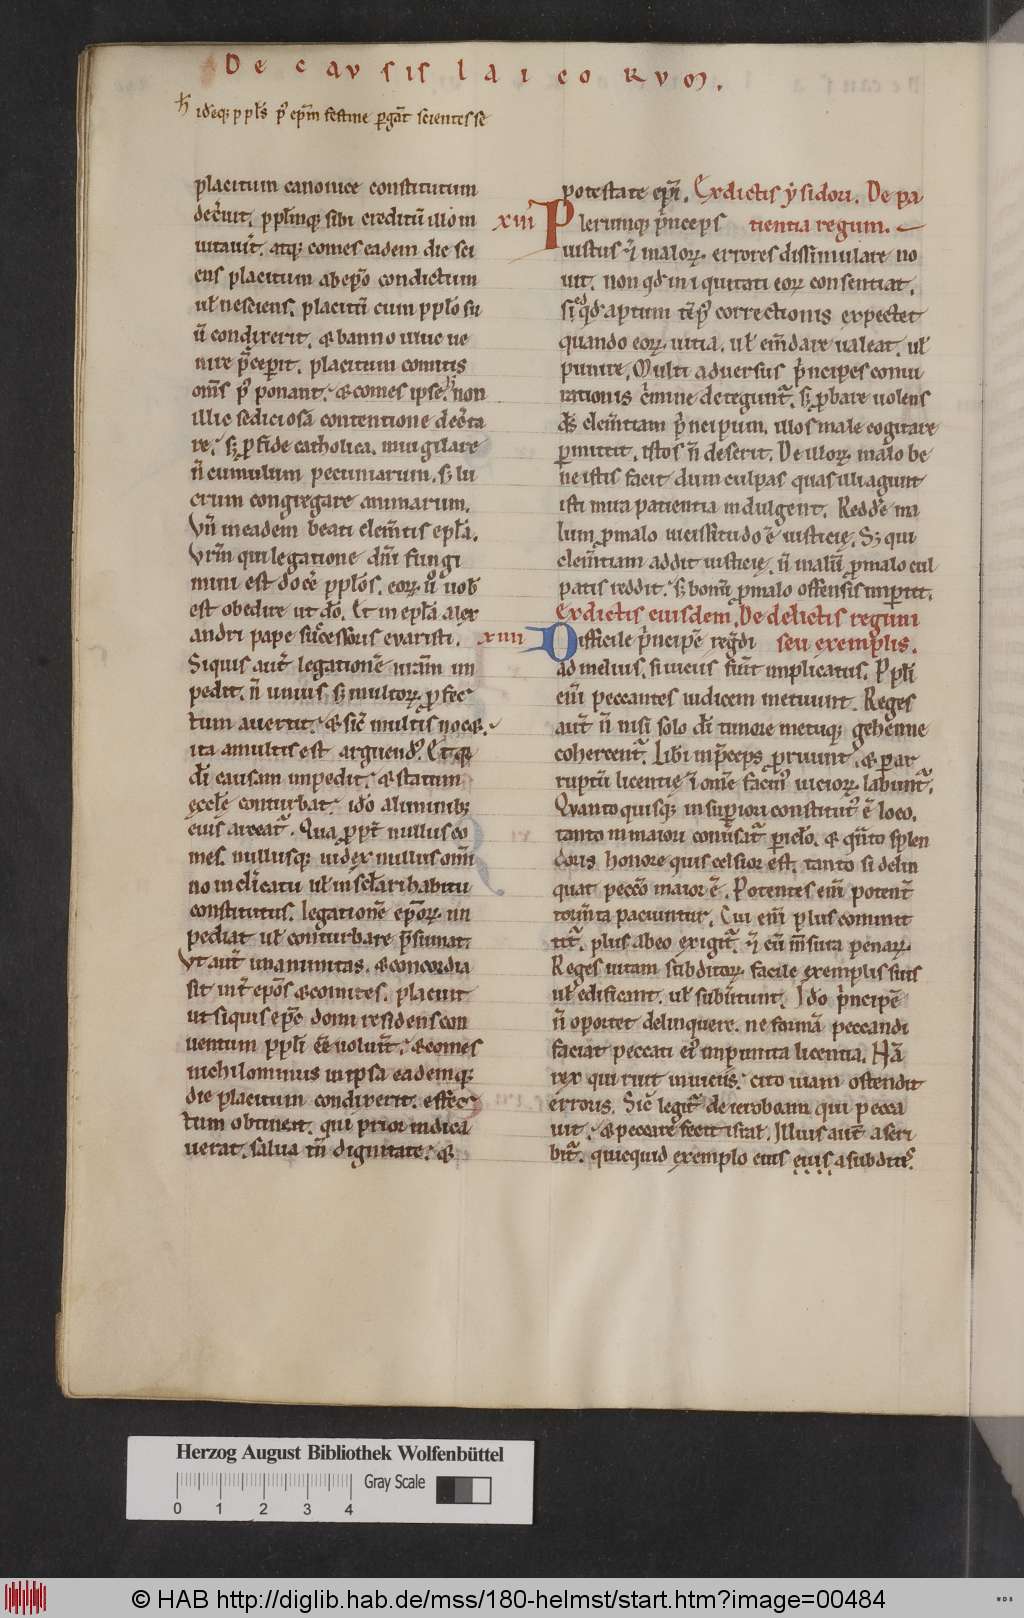 De causis laicorum.
h̄ ideoq; p pl̄s p̄ ep̄m festine ꝑgāt scientes se
placitum canonice constitutum
dec̄uit. ppl̄mq; sibi creditū illo in
uitauit̄. atq; comes eadem die sci
ens placitum ab ep̄o condictum
ul̄ nesciens. placitū cum ppl̄o su
ū condixerit. & banno illuc ue
nire p̄ceꝑit. placitum comitis
om̄s p̄ ponant. & comes ipse h̄ non
illic sediciosā contentione dec̄ta
re. sꝫ ꝓ fide catholica. inuigilare
n̄ cumulum pecuniarum. sꝫ lu
crum congregare animarum.
Vn̄ in eadem beati clem̄tis epl̄a.
Vrm̄ qui legatione dn̄i fungi
mini est docē ppl̄os. eorꝝ ū uob̄
est obedire ut dō. Et in epl̄a alex
andri pape suc̄essoris euaristi.
Siquis aut̄ legationē nr̄am im
pedit. n̄ unius sꝫ multorꝝ ꝓfec
tum auertit. & sic̄ multis noc&.
ita a multis est arguend᷒. Et q̄
dī causam impedit. & statum
ęcclę conturbat. idō a liminibꝫ
eius arceat̄. Qua ꝓpt̄ nullus co
mes. nullusq; iudex nullus om̄i
no in cl̄icatu ul̄ in sc̄lari habitu
constitutus. legationē ep̄orꝝ im
pediat ul̄ conturbare p̄sumat.
Vt aut̄ unanimitas. & concordia
sit int̄ ep̄os & comites. placuit
ut siquis ep̄c domi residens con
uentum ppl̄i eē uoluit̄. & comes
nichilominus in ipsa eademq;
die placitum condixerit. effec
tum obtineat. qui prior indica
uerat. salua tn̄ dignitate. &
potestate ep̄i. Ex dictis ysidori. De pa
xiii Plerumq; p̄nceps tientia regum.
iustus &̄ malorꝝ errores dissimulare no
uit. non qd̄ in iquitati eorꝝ consentiat.
sed qd̄ aptum tēp᷒ correctionis expectet
quando eorꝝ uitia. ul̄ em̄dare ualeat. ul̄
punire. Multi aduersus p̄ncipes coniu
rationis c̄mine detegunt̄. sꝫ ꝓbare uolens
ds̄ clem̄tiam p̄ncipum. illos male cogitare
ꝑmittit. istos n̄ deserit. De illorꝝ malo be
ne istis facit dum culpas quas illi agunt
isti mira patientia indulgent. Redde ma
lum ꝓ malo uicissitudo ē iusticię. Sꝫ qui
clem̄tiam addit iusticię. n̄ malū ꝓ malo cul
patis reddit. sꝫ bonū ꝓ malo offensis imꝑtit.
Ex dictis eiusdem. De delictis regum
xiiii Difficile p̄ncipē reḡdi seu exemplis.
ad melius. si uiciis fuit̄ implicatus. Ppl̄i
eni͞ peccantes iudicem metuunt. Reges
aut̄ n̄ nisi solo dī timore metuq; gehenne
cohercent̄. Libi in p̄ceps ꝓruunt. & ꝑ ar
ruptū licentię ī om̄e facin᷒ uiciorꝝ labunt̄.
Quanto quisq; in suꝑiori constitut᷒ ē loco.
tanto in maiori conūsat̄ ꝑicl̄o. & q̄nto splen
doris honore quis celsior est. tanto si delin
quat peccō maior ē. Potentes eni͞ potent̄
tourm̄ta paciuntur. Cui eni͞ plus commit
tit̄. plus ab eo exigit̄. ī cū m̄sura penarꝝ.
Reges uitam subditorꝝ facile exemplis suis
ul̄ edificant. ul̄ subūtunt. Idō p̄ncipē
n̄ oportet delinquere. ne formā peccandi
faciat peccati ei᷒ impunita licentia. Nā
rex qui ruit in uiciis. cito uiam ostendit
erroris. Sic̄ legit̄ de ieroboam qui pecca
uit. & peccare fecit isral̄. Illius aut̄ ascri
bit̄. quicquid exemplo eius eius a subditis.
Herzog August Bibliothek Wolfenbüttel
Gray Scale
0 1 2 3 4
© HAB http://diglib.hab.de/mss/180-helmst/start.htm?image=00484